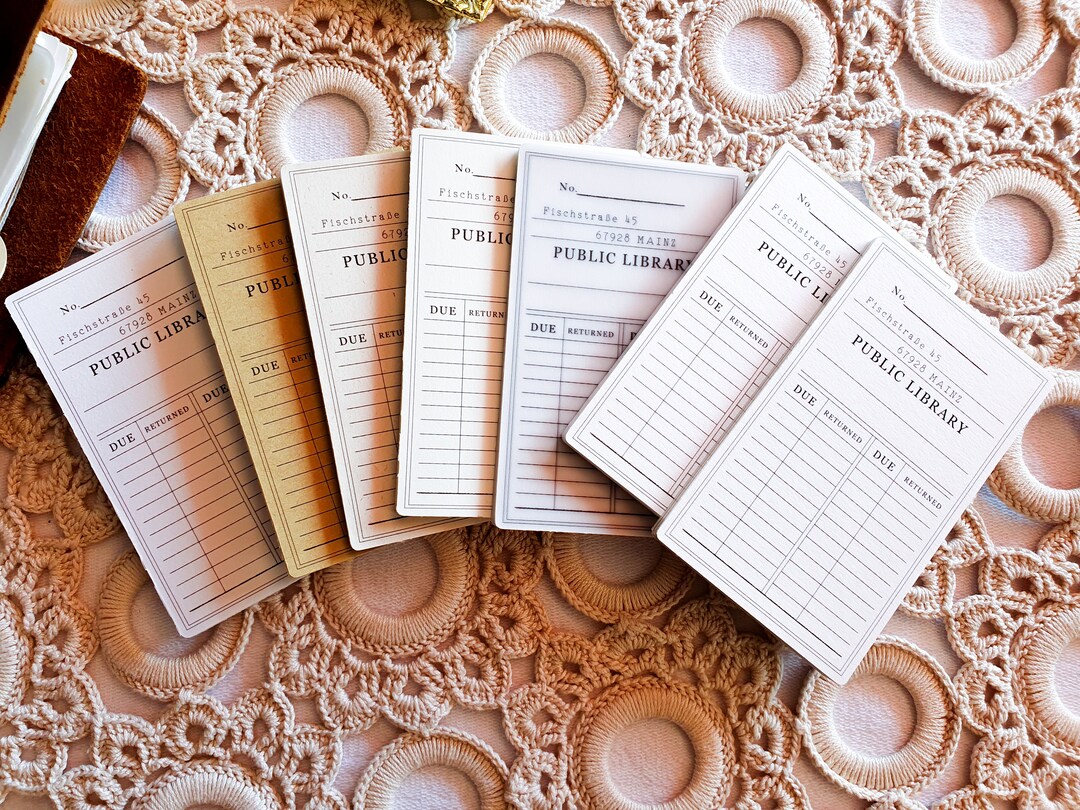 No.
Fischstraße 45
67928 MAINZ
PUBLIC LIBRA
DUE RETURNED DUE
No.
Fischstraße
PUBL
DUE RE
No.
Fischstraße
679
PUBLIC
DUE RETU
No.
Fischstraße
679
PUBLIC
DUE RETURNED
No.
Fischstraße 45
67928 MAINZ
PUBLIC LIBRARY
DUE RETURNED
No.
Fischstraße 45
67928 MAI
PUBLIC LI
DUE RETURNED
No.
Fischstraße 45
67928 MAINZ
PUBLIC LIBRARY
DUE RETURNED DUE RETURNED